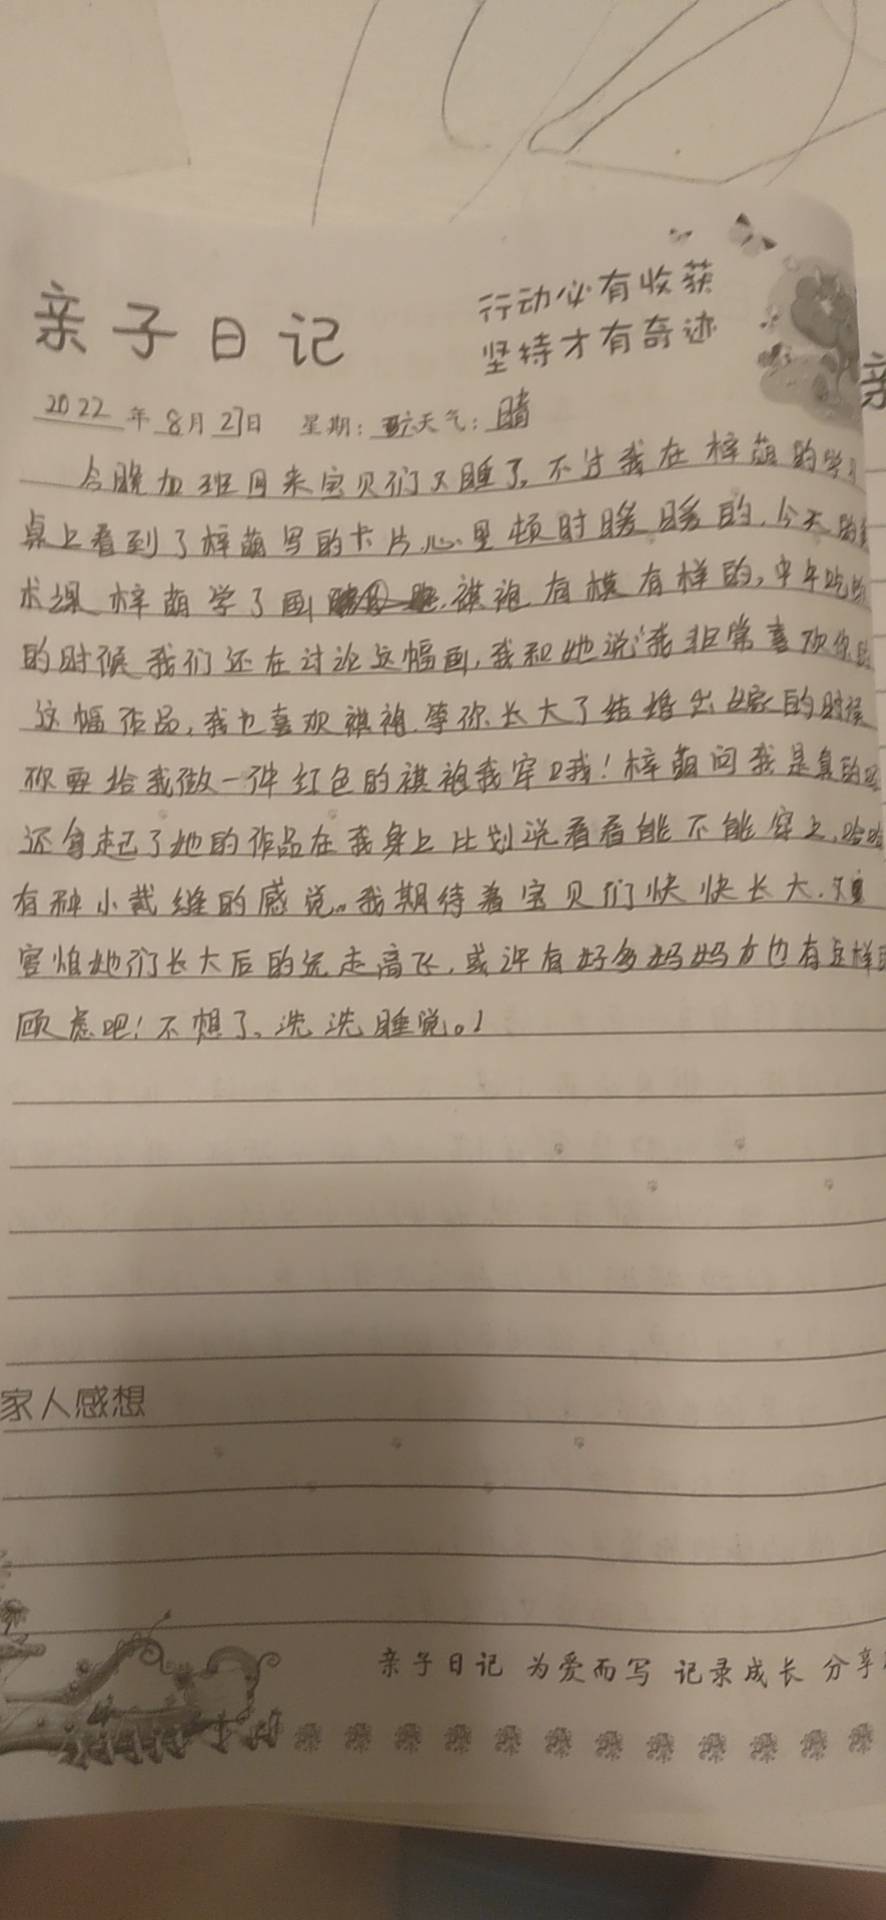 亲子日记
行动必有收获
坚持才有奇迹
2022年8月27日 星期: 天气:晴
今晚加班回来宝贝们又睡了,不过我在梓萌的学习
桌上看到了梓萌写的卡片,心里顿时暖暖的,今天的美
术课梓萌学了画 祺袍,有模有样的,中午吃的
的时候我们还在讨论这幅画,我和她说“我非常喜欢你的
这幅作品,我也喜欢祺袍,等你长大了结婚出嫁的时候
你要给我做一件红色的祺袍我穿 我!梓萌问我是真的
还拿起了她的作品在我身上比划说看看能不能穿上,哈哈
有种小裁缝的感觉。我期待着宝贝们快快长大,又
害怕她们长大后的远走高飞,或许有好多妈妈 也有这样的
顾虑吧!不想了、洗洗睡觉。!
家人感想
亲子日记 为爱而写 记录成长 分享